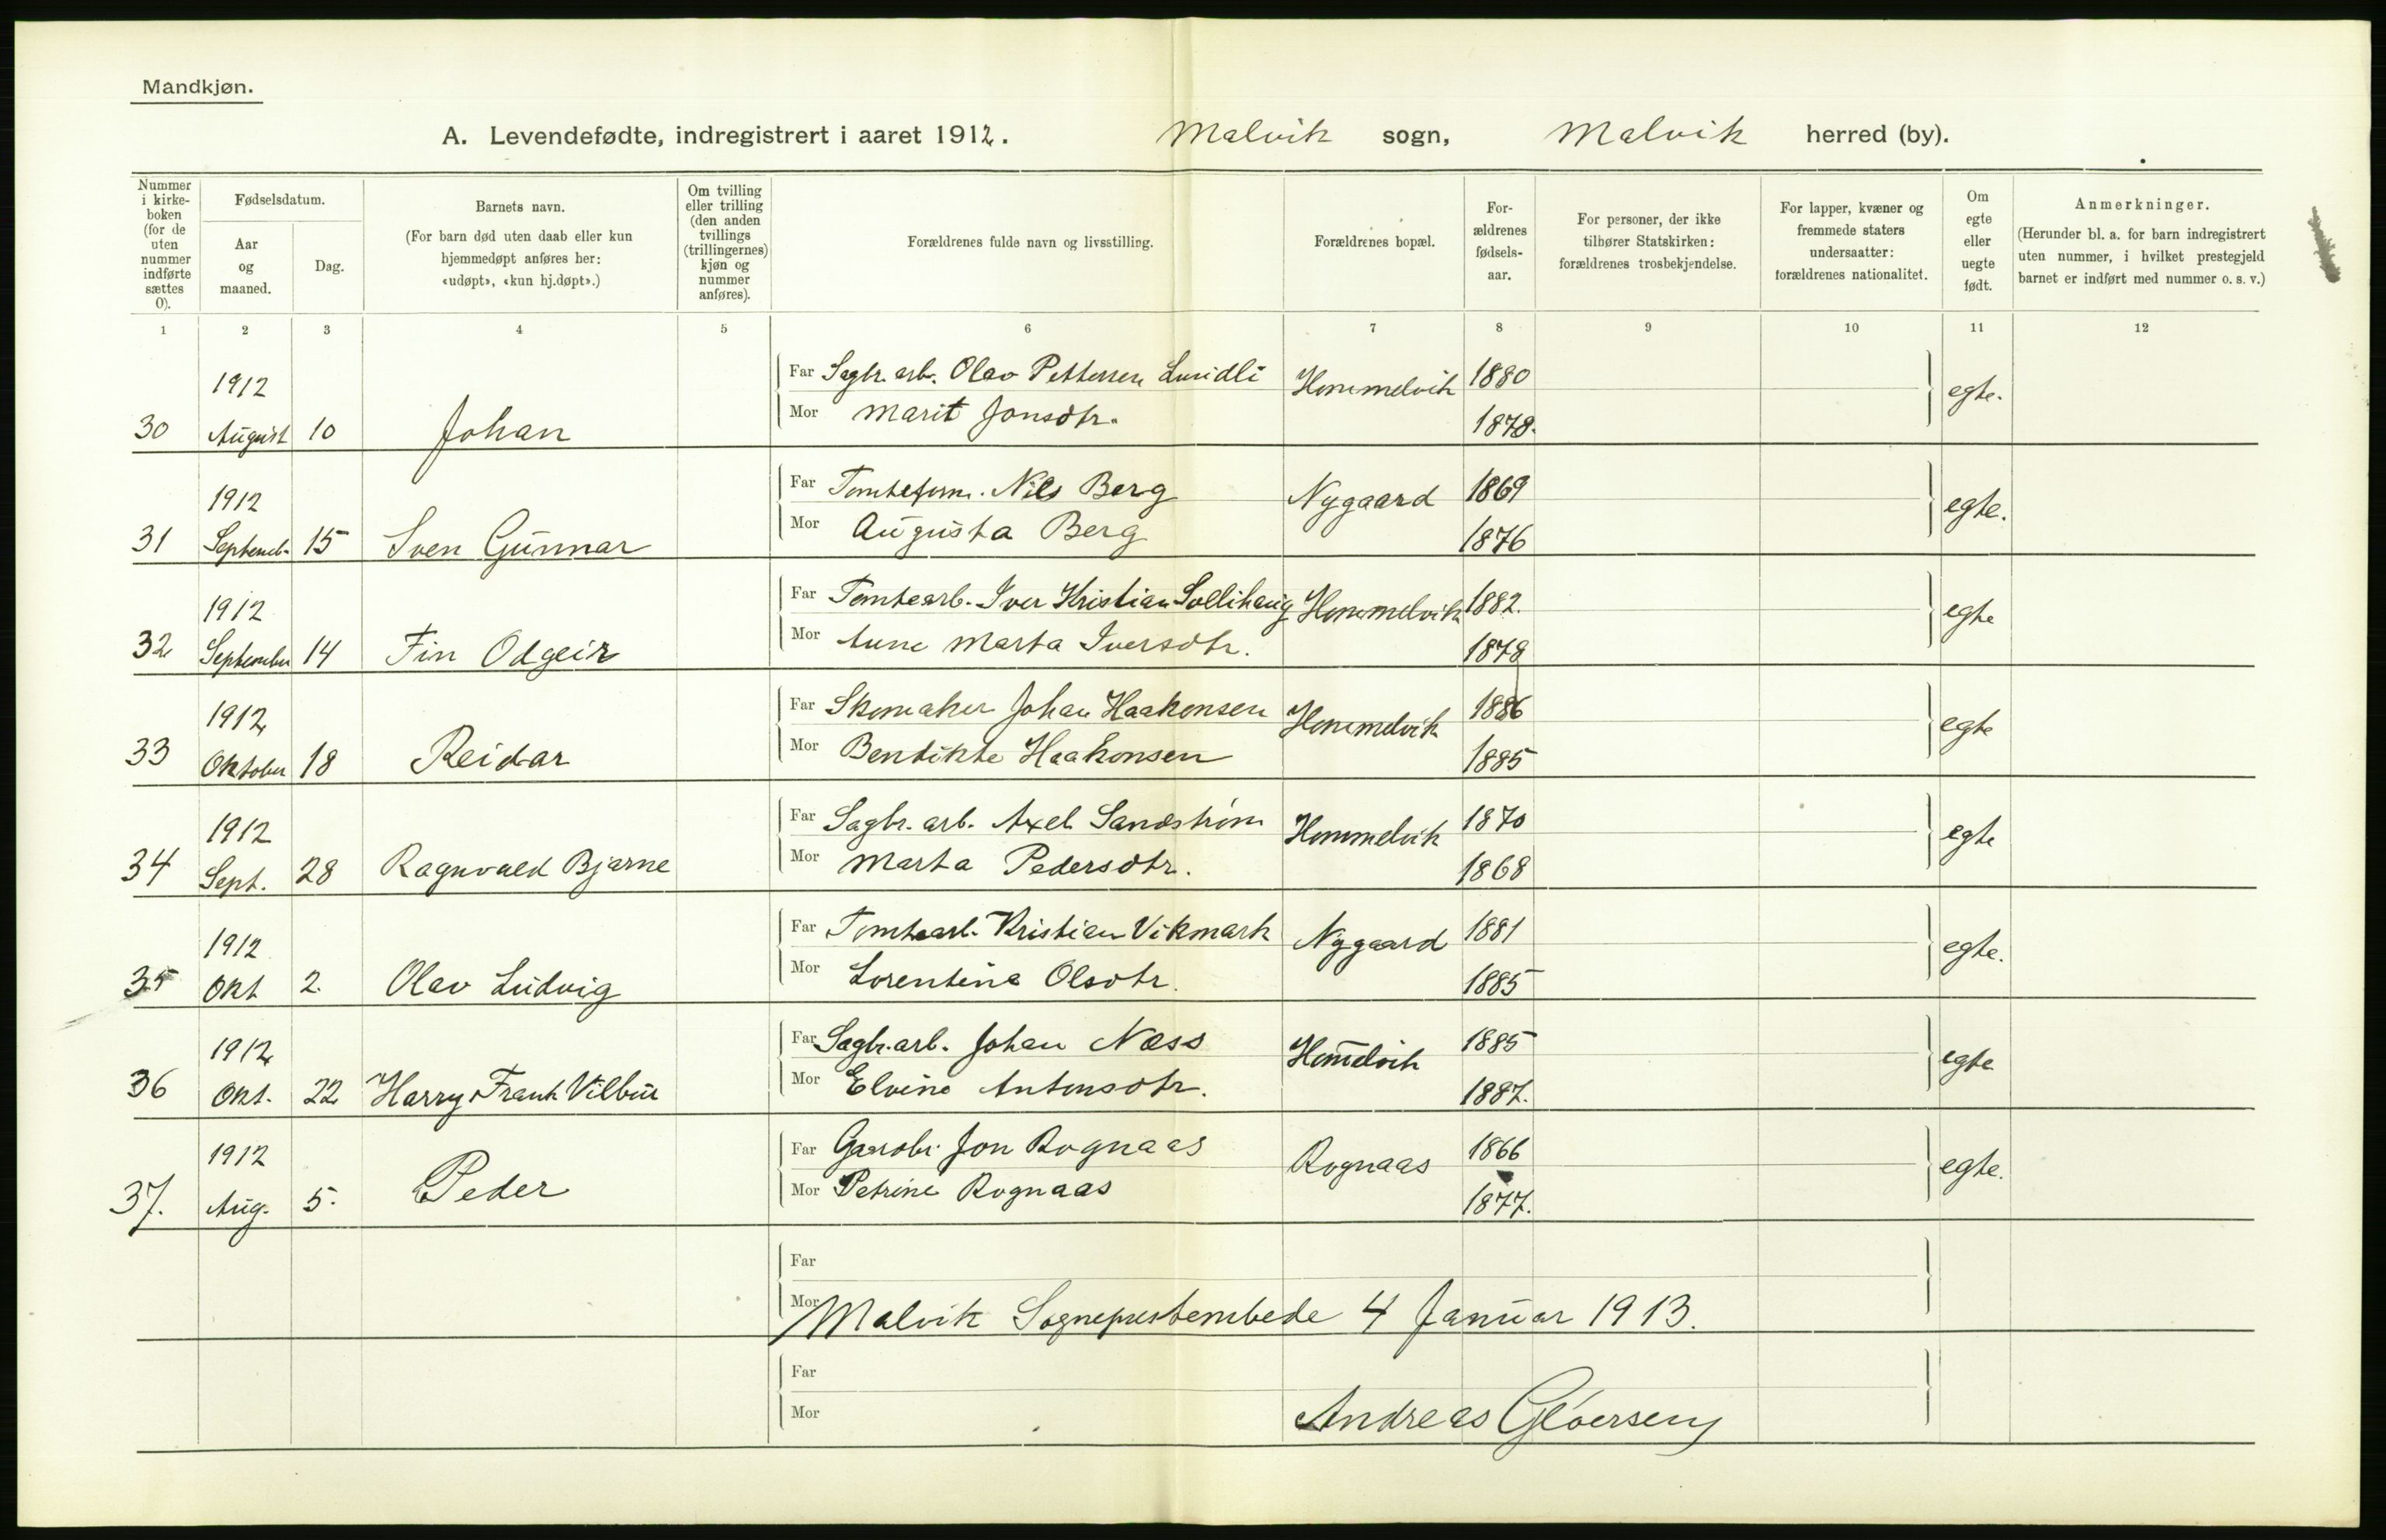 Mandkjøn.
A. Levendefødte, indregistrert i aaret 1912. Malvik sogn, Malvik herred (by).
Nummer i kirke-boken (for de uten nummer indførte sættes 0).
Fødselsdatum.
Aar og maaned.
Dag.
Barnets navn.
(For barn død uten daab eller kun hjemmedøpt anføres her: «udøpt», «kun hj.døpt».)
Om tvilling eller trilling (den anden tvillings (trillingernes) kjøn og nummer anføres).
Forældrenes fulde navn og livsstilling.
Forældrenes bopæl.
For-ældrenes fødsels-aar.
For personer, der ikke tilhører Statskirken: forældrenes trosbekjendelse.
For lapper, kvæner og fremmede staters undersaatter: forældrenes nationalitet.
Om egte eller uegte født.
Anmerkninger.
(Herunder bl. a. for barn indregistrert uten nummer, i hvilket prestegjeld barnet er indført med nummer o. s. v.)
1 2 3 4 5 6 7 8 9 10 11 12
1912 Far Sagbr. arb. Olav Pettersen Hommelvik 1880 egte.
30 August 10 Johan Mor Marit Jonsdtr. 1878.
1912 Far Tomteform. Nils Berg Nygaard 1869 egte.
31 Septemb. 15 Sven Gunnar Mor Augusta Berg 1876
1912 Far Tomtearb. Iver Kristian Sollihaug Hommelvik 1882. egte
32 September 14 Fin Odgeir Mor Marta Iversdtr. 1878
1912 Far Skomaker Johan Haakonsen Hommelvik 1886 egte
33 Oktober 18 Reidar Mor Bendikte Haakonsen 1885
1912 Far Sagbr. arb. Axel Sandstrøm Hommelvik 1870 egte
34 Sept. 28 Ragnvald Bjarne Mor Marta Pedersdtr. 1868
1912 Far Tomtearb. Kristian Vikmark Nygaard 1881 egte.
35 Okt 2. Olav Ludvig Mor Lorentine Olsdtr. 1885
1912 Far Sagbr. arb. Johan Næss Hom̅elvik 1885 egte
36 Okt. 22 Harry Frank Mor Elvine Antonsdtr. 1887.
1912 Far Gaardbr. Jon Rognaas Rognaas 1866 egte.
37. Aug. 5. Peder Mor Petrine Rognaas 1877.
Far
Mor Malvik Sogneprestembede 4 Januar 1913.
Far
Mor Andreas